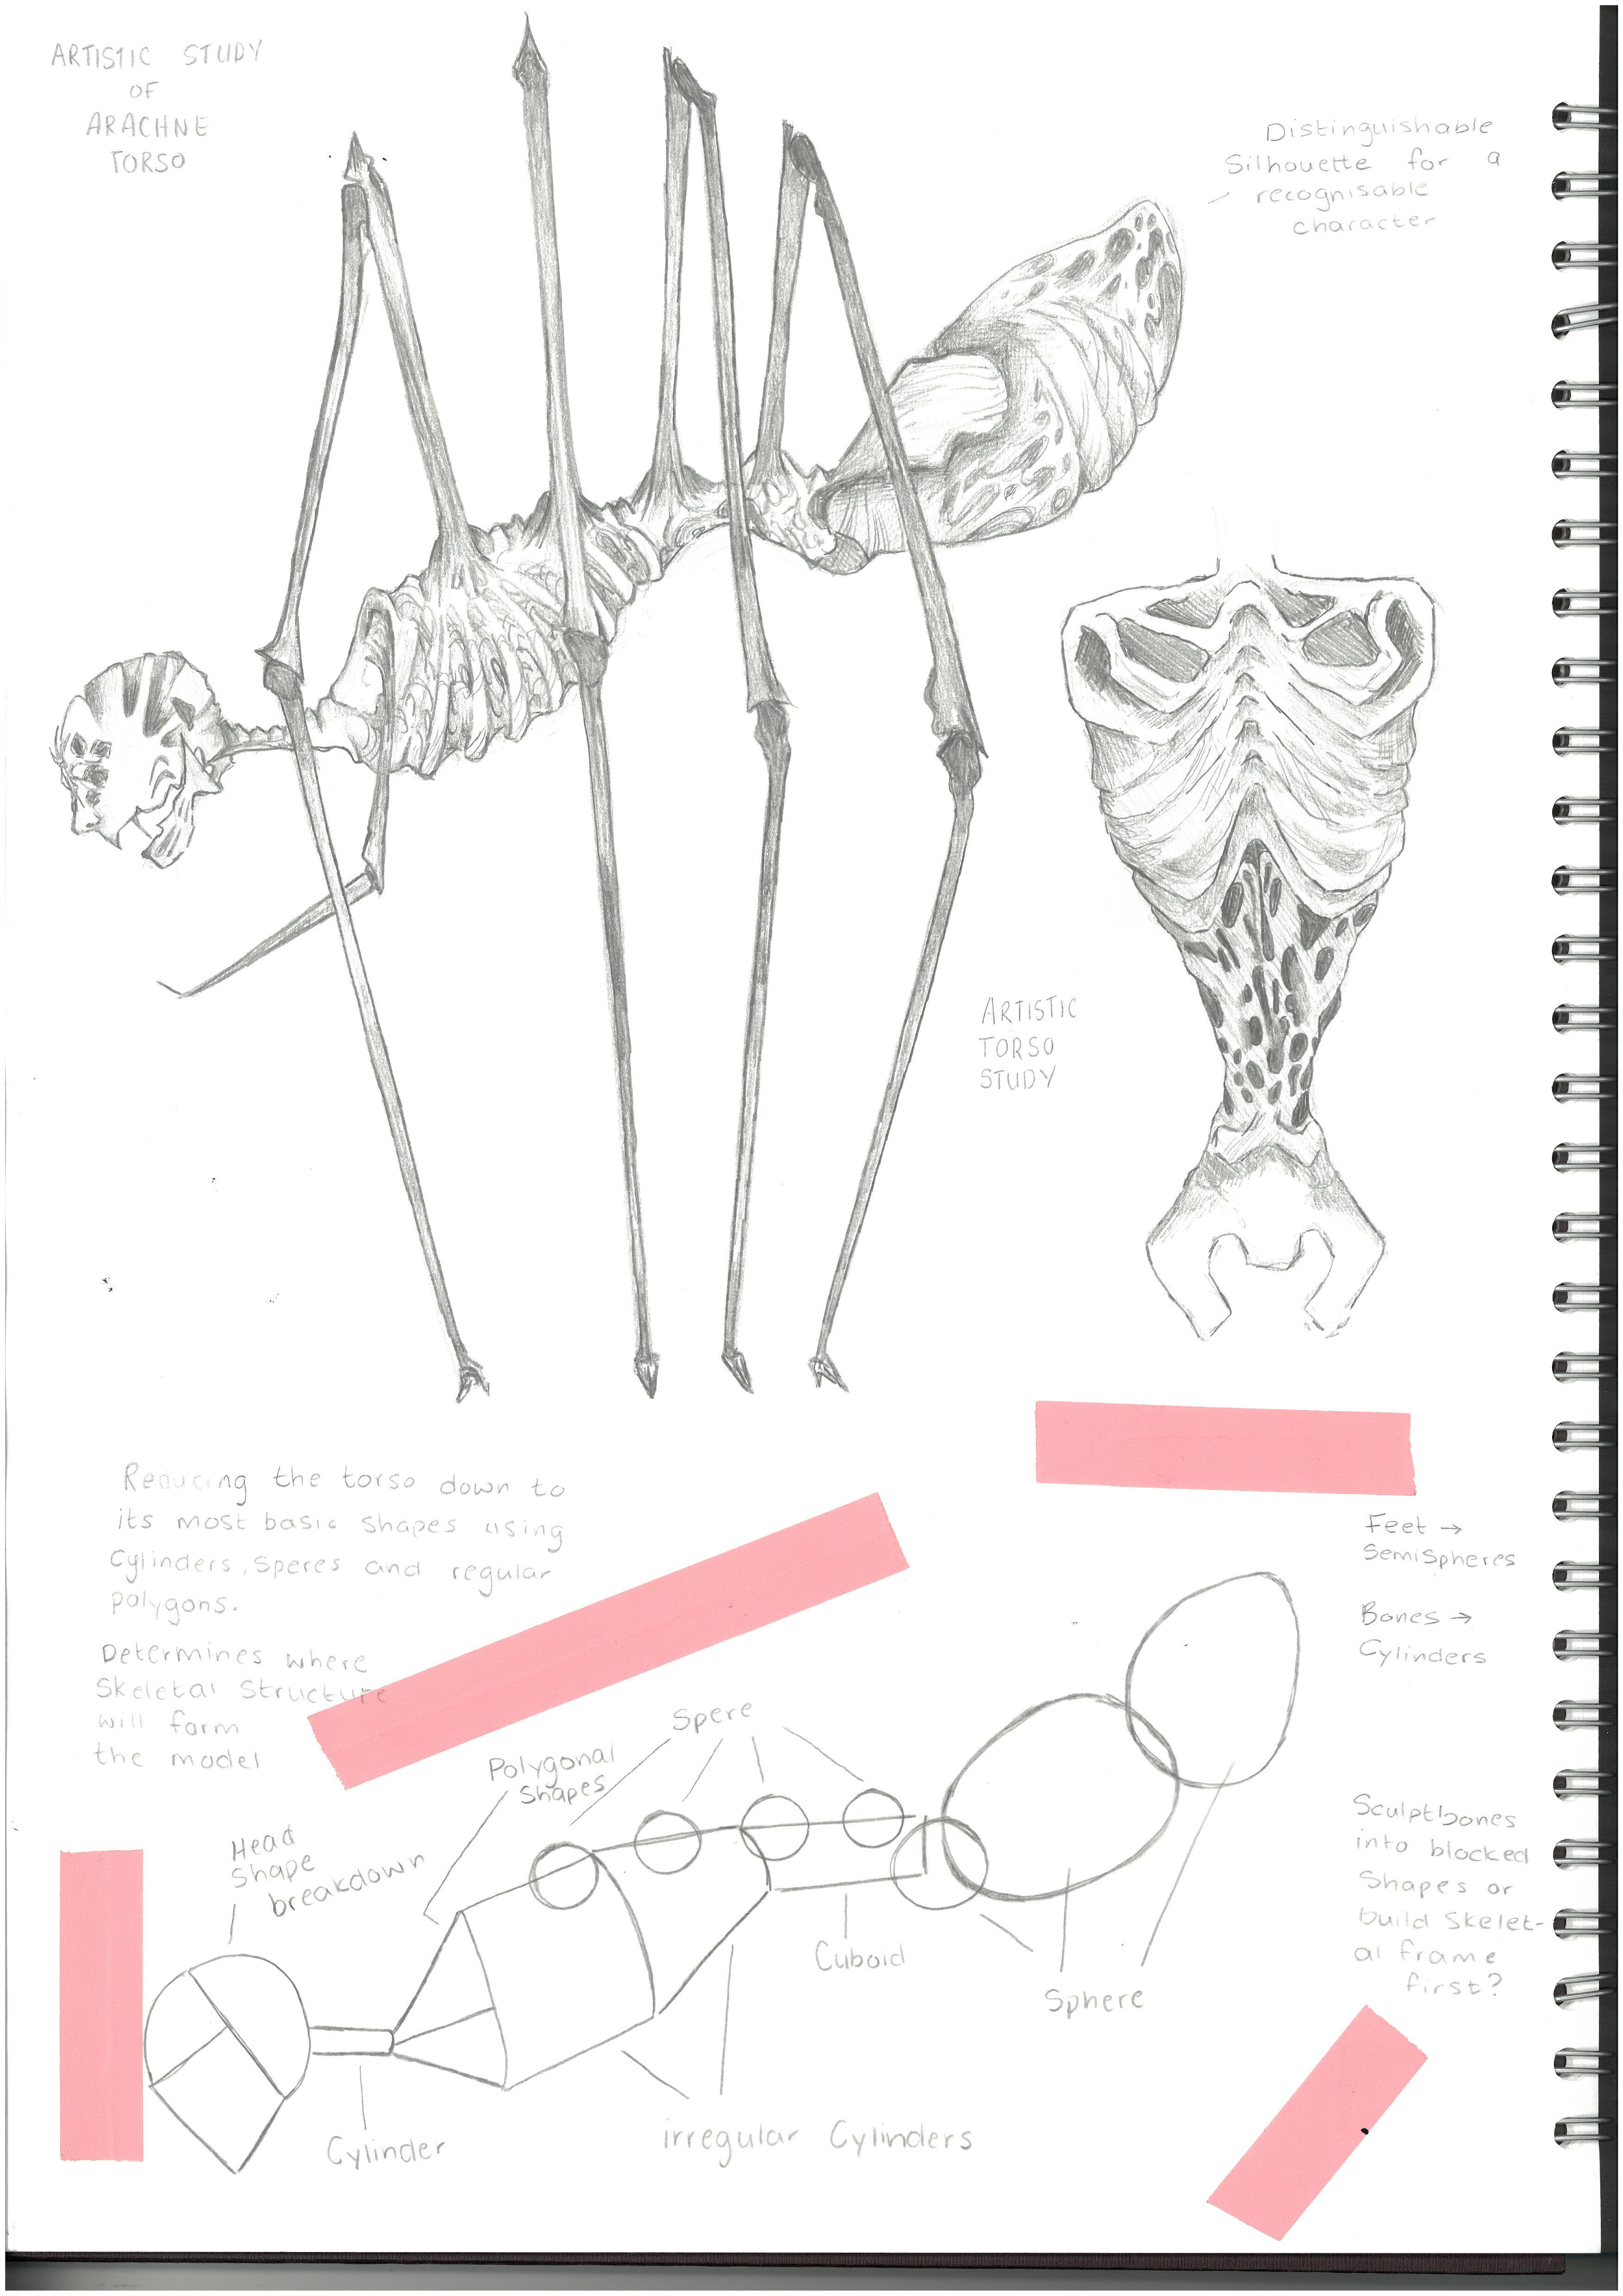 ARTISTIC STUDY
OF
ARACHNE
TORSO
Distinguishable
Silhouette for a
recognisable
character
ARTISTIC
TORSO
STUDY
Reducing the torso down to
its most basic shapes using
Cylinders, Speres and regular
polygons.
Determines where
Skeletal Structure
will form
the model
Feet →
Semispheres
Bones →
Cylinders
Spere
Polygonal
Shapes
Head
Shape
breakdown
Sculptbones
into blocked
Shapes or
build Skelet-
al frame
first?
Cuboid
Sphere
Cylinder
irregular Cylinders